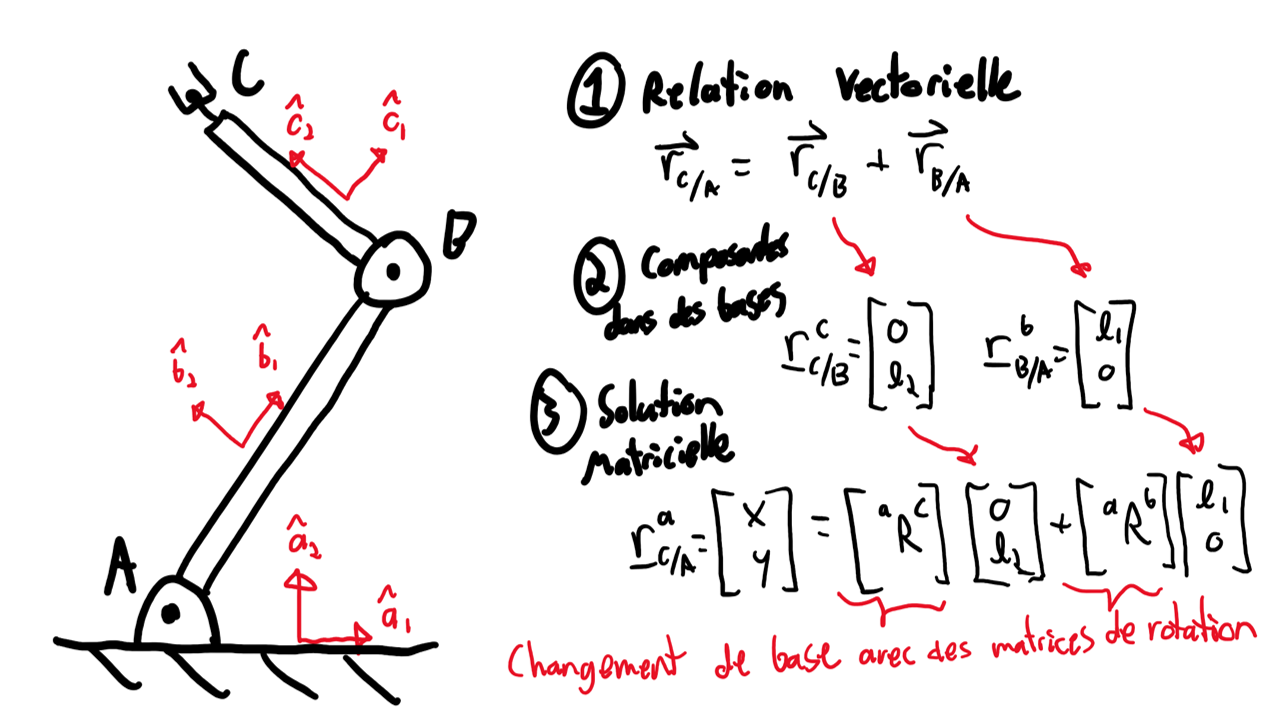 C
ĉ₂ ĉ₁
B
b̂₂ b̂₁
A
â₂
â₁
① Relation vectorielle
r⃗_C/A = r⃗_C/B + r⃗_B/A
② Composantes
dans des bases
r^c_C/B = [0 l₂] r^b_B/A = [l₁ 0]
③ Solution
Matricielle
r^a_C/A = [x y] = [ᵃR^c] [0 l₂] + [ᵃR^b] [l₁ 0]
Changement de base avec des matrices de rotation